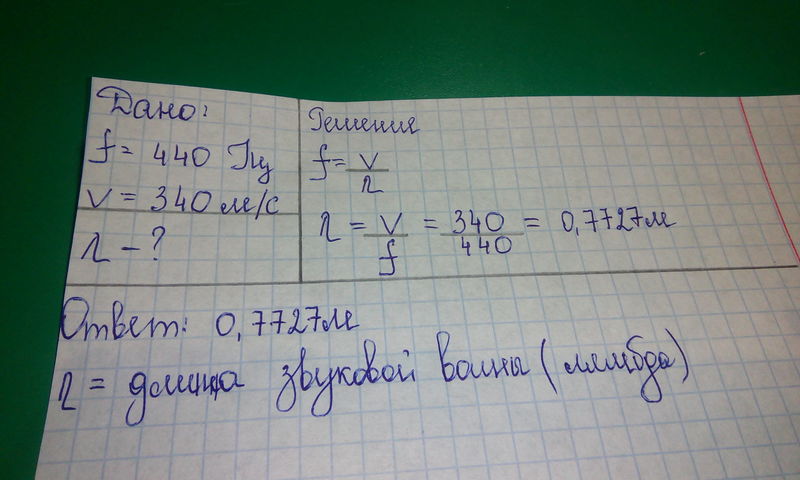 Дано:
f = 440 Гц
v = 340 м/с
λ - ?
Решение
f = v
λ
λ = v = 340 = 0,7727м
f 440
Ответ: 0,7727м
λ = длина звуковой волны (лямбда)